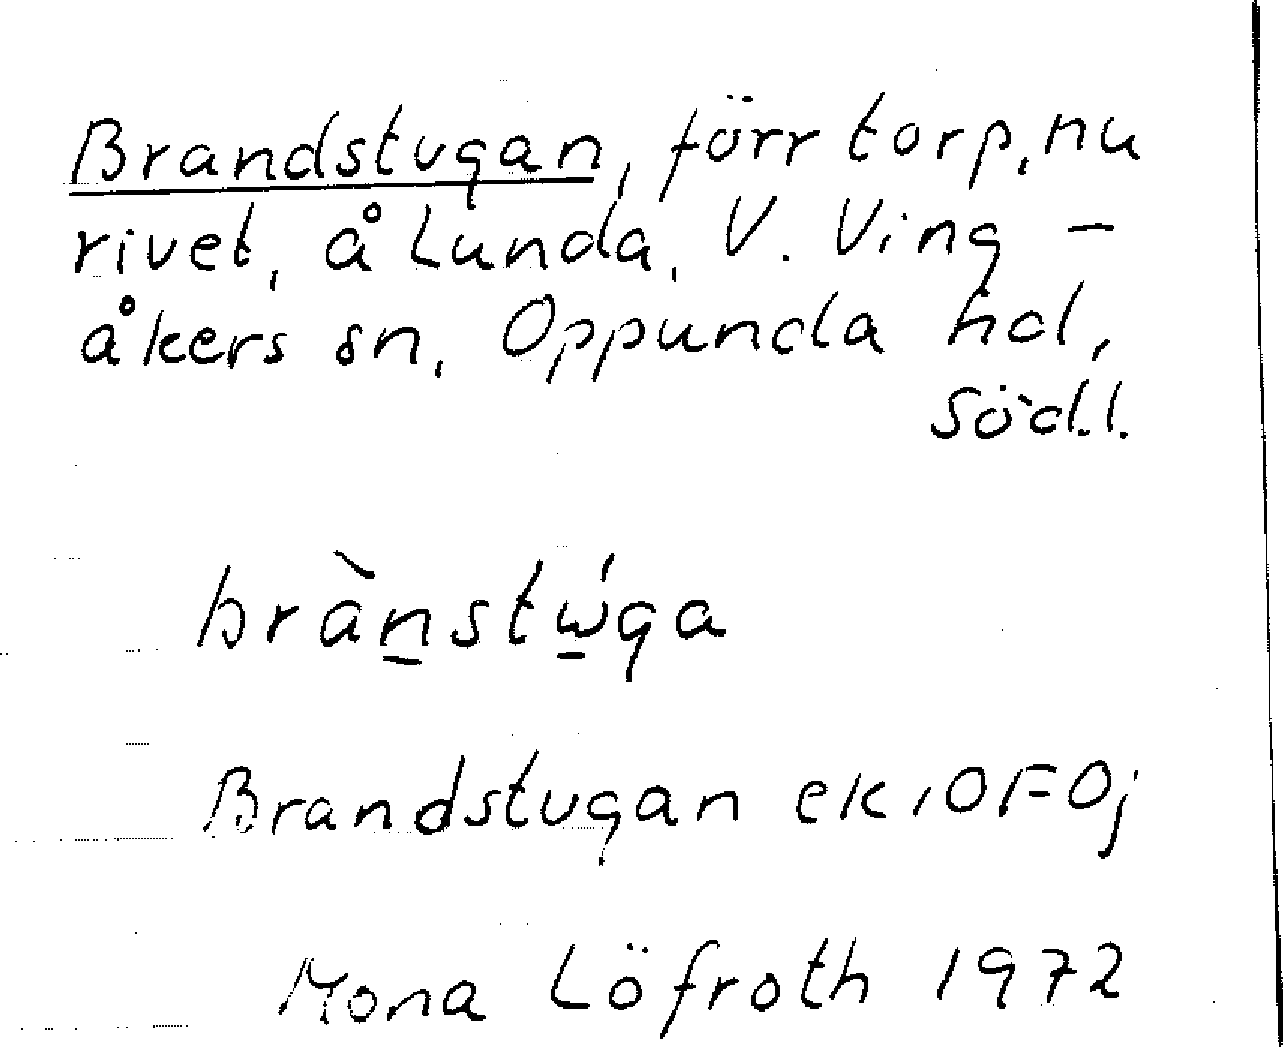 Brandstugan, förr torp, nu
rivet, å Lunda, V. Ving-
åkers sn, Oppunda hd,
Söd.l.
brànstώga
Brandstugan ek, OFOj
Mona Löfroth 1972